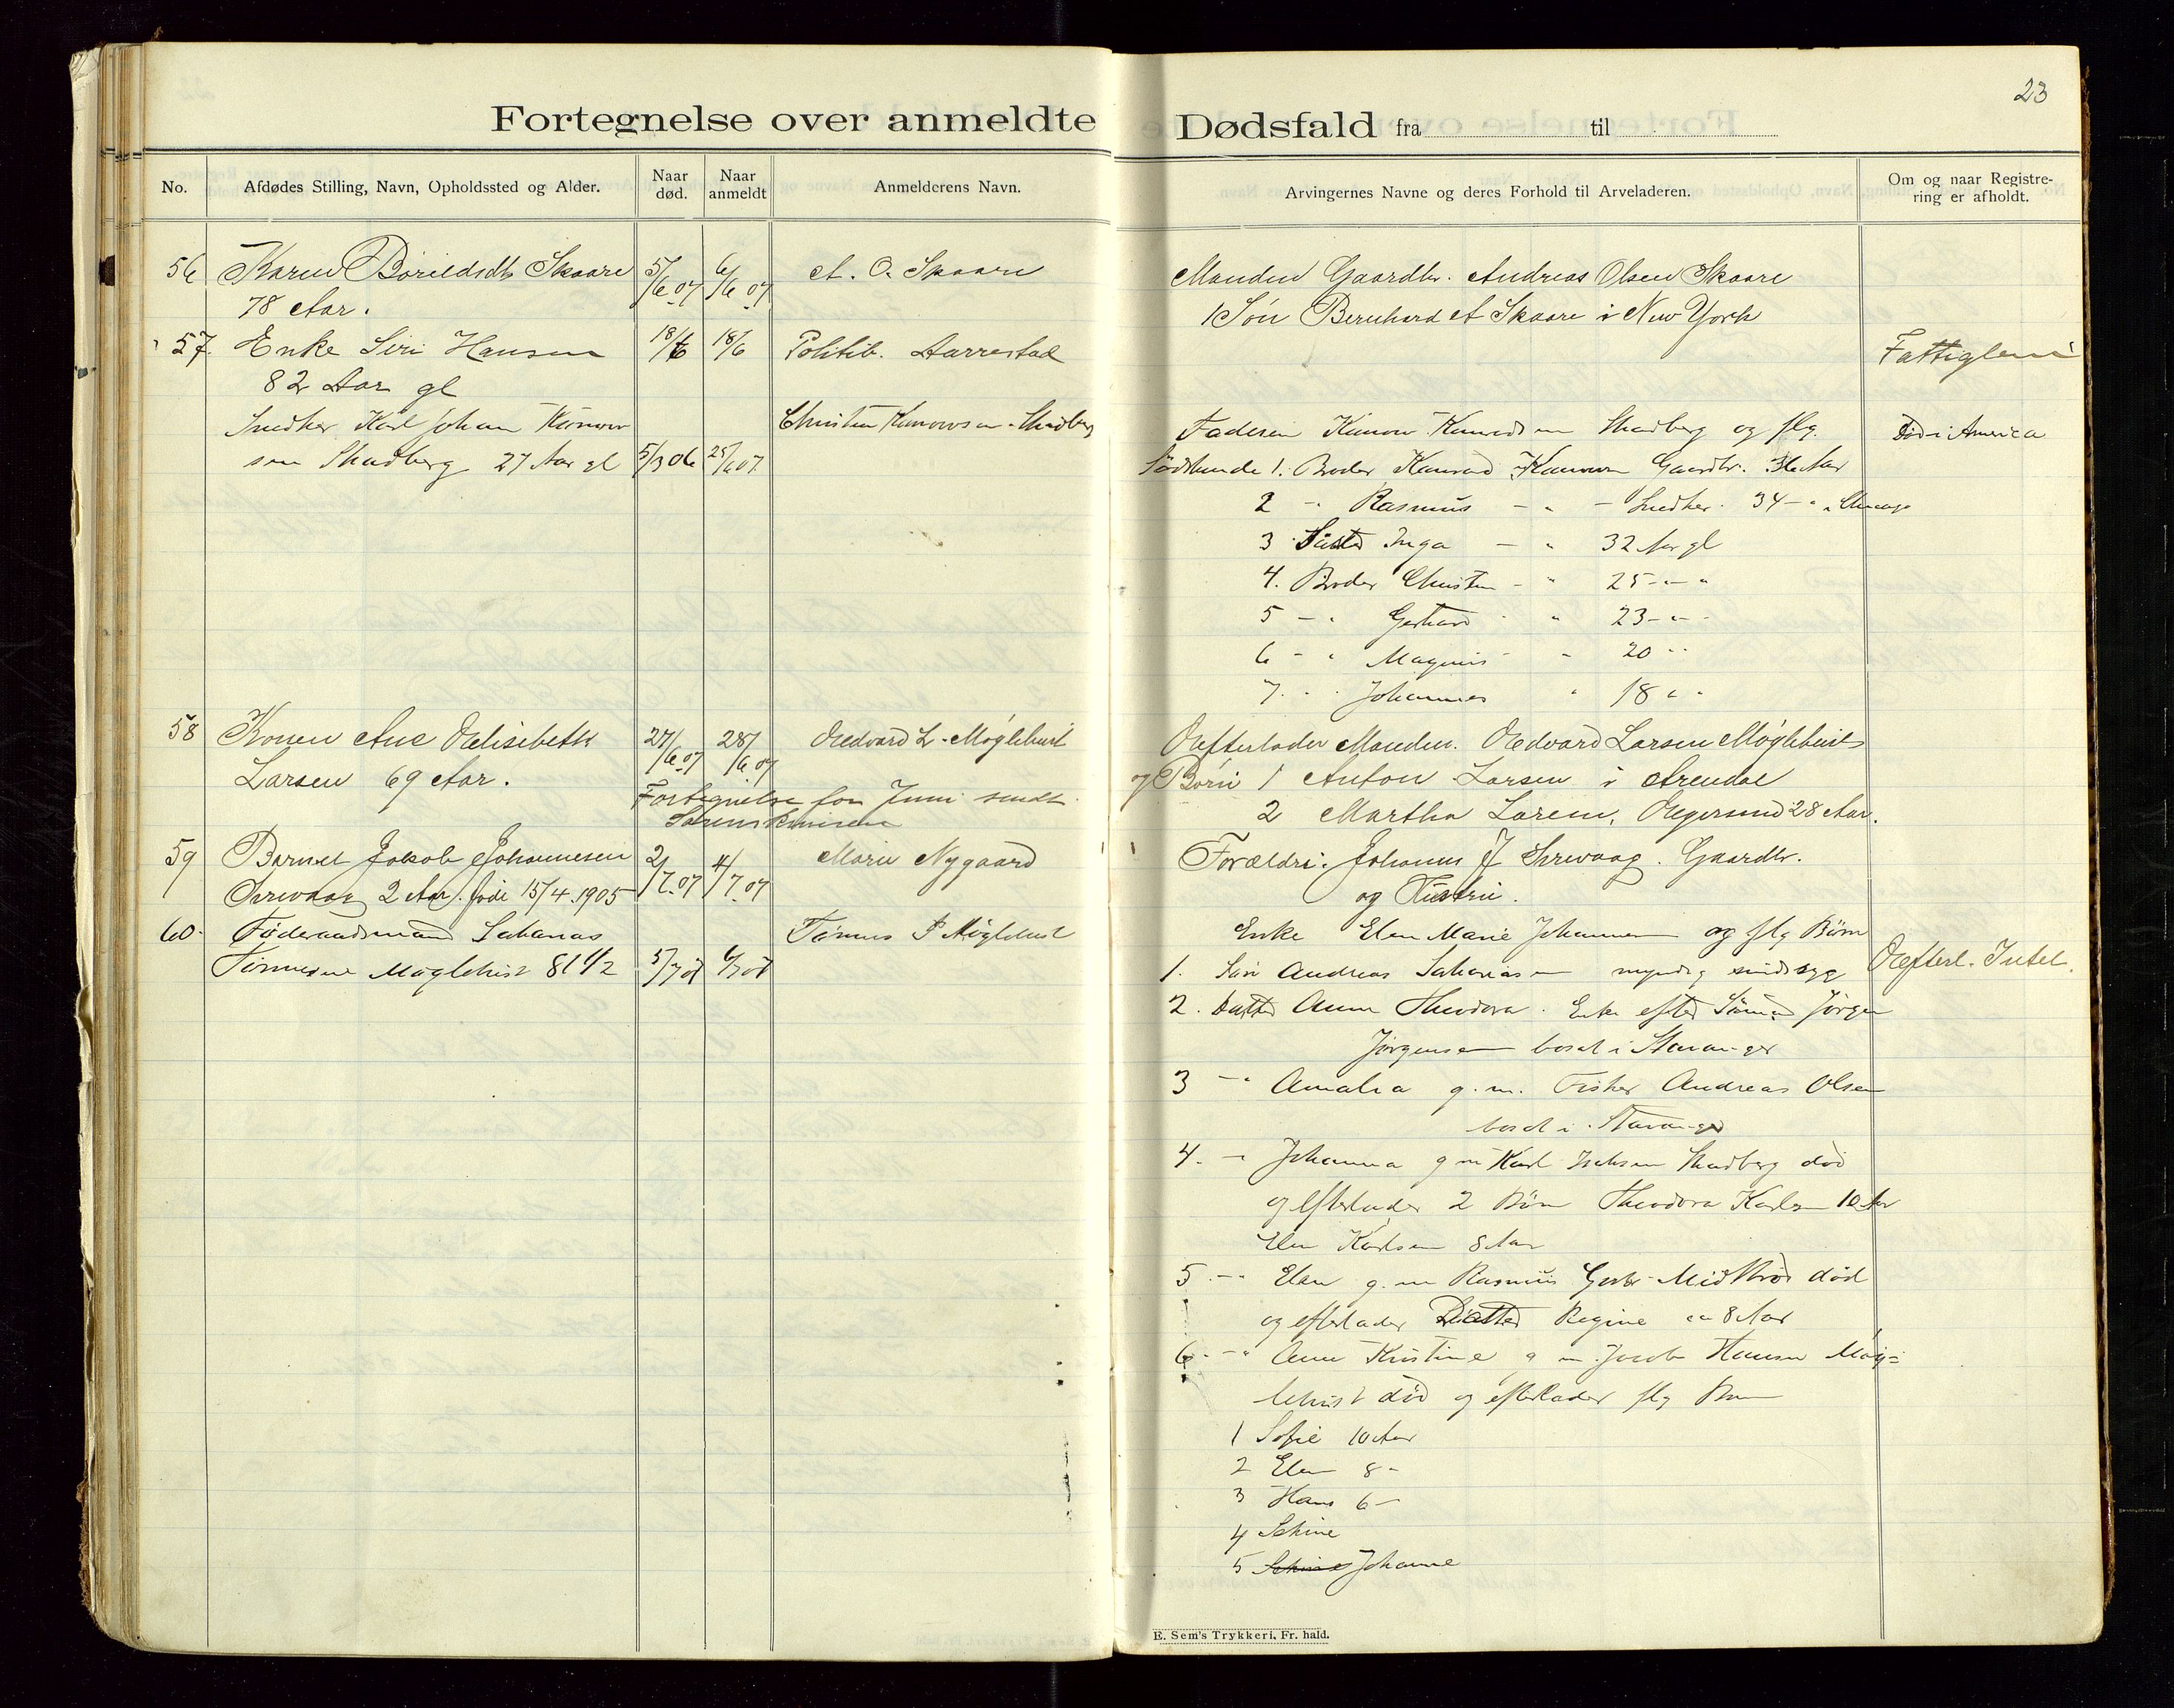 23
Fortegnelse over anmeldte Dødsfald fra til
No.
Afdødes Stilling, Navn, Opholdssted og Alder.
Naar død.
Naar anmeldt
Anmelderens Navn.
Arvingernes Navne og deres Forhold til Arveladeren.
Om og naar Registre-
ring er afholdt.
56 Karen Børildsdtr Skaare 5/6 07 6/6 07 A. O. Skaare Manden Gaardbr. Andreas Olsen Skaare
78 Aar. 1 Søn Bernhard A Skaare i New York
57. Enke Siri Hansen 18/6 18/6 Politib. Aarrestad Fattiglem
82 Aar gl
Snedker Karl Johan Christen Stadberg Faderen Stadberg og flg. Død i America
sen Stadberg 27 Aar gl 5/3 06 25/6 07 Sødskende 1. Broder Gaardbr. 36 Aar
2 - " Rasmus - " - Snedker 34 - " i Chicago
3 Søster Inga - " 32 Aar gl
4. Broder Christen - " 25 - " - "
5 - " Gerhard " 23 - " -
6 - " Magnus - " 20 " "
7. " " Johannes " 18 " "
58 Konen Ane Elisebeth 27/6 07 28/6 07 Edvard L. Møglebust Efterlader Manden. Edvard Larsen Møglebust
Larsen 69 Aar. og Børn 1 Anton Larsen i Arendal
Fortegnelse for Juni sendt
Sorenskriveren
2 Martha Larsen, Egersund 28 Aar.
59 Barnet Jakob Johannesen 2/7 07 4/7 07 Marie Nygaard Forældre. Johannes J Sirevaag. Gaardbr.
Sirevaag 2 Aar. født 15/4 1905 og Hustru.
60. Føderaadsmand Sakarias Tønnes S Møglebust Enke Elen Marie Johannesen og flg Børn
Tønnesen Møglebust 81 1/2 5/7 07 6/7 07 1. Søn Andreas Sakariasen myndig sindssyg Efterl. Intet.
2. Datter Anne Theodora. Enke efter Sømand Jörgen
Jörgensen bosat i Stavanger
3 - " Amalia g. m. Fisker Andreas Olsen
bosat i Stavanger
4. - " Johanna g m Karl Stadberg død
og efterlader 2 Børn Theodora Karlsen 10 Aar
Elen Karlsen 8 Aar
5. - " Elen g. m Rasmus Midbrød død
og efterlader Datter Regine 8 Aar
6. - " Anne Kristine g m Jacob Hansen Møg=
lebust død og efterlader flg Børn
1 Sofie 10 Aar
2 Elen 8 -
3 Hans 6 -
4 Sakine
5 Johanne
E. Sem's Trykkeri, Fr. hald.